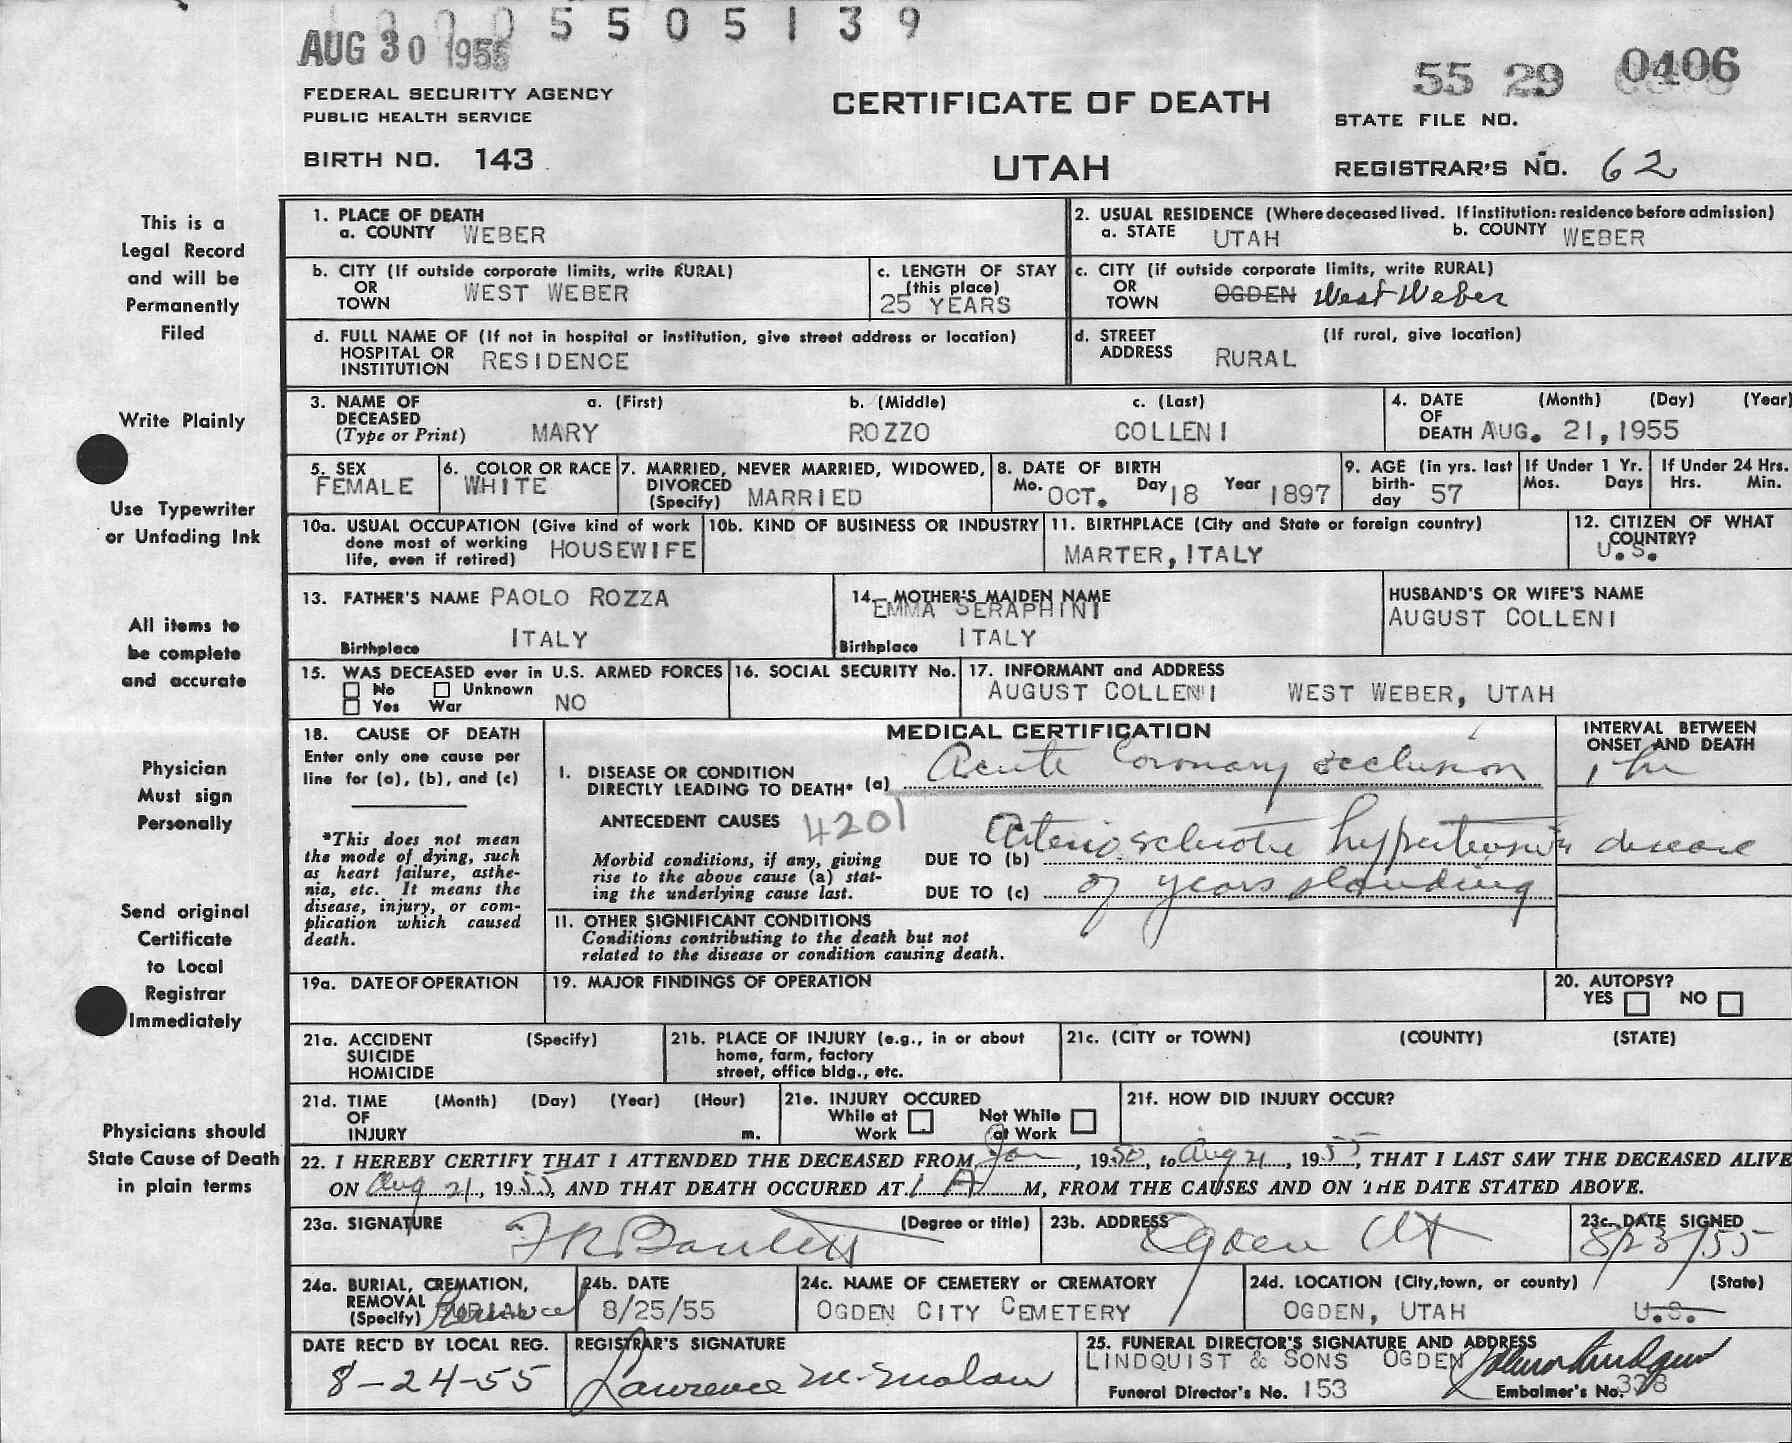 5505139
AUG 30 1955
55 29 0406
FEDERAL SECURITY AGENCY
PUBLIC HEALTH SERVICE
CERTIFICATE OF DEATH
STATE FILE NO.
BIRTH NO. 143
UTAH
REGISTRAR'S NO. 62
This is a
Legal Record
and will be
Permanently
Filed
Write Plainly
Use Typewriter
or Unfading Ink
All items to
be complete
and accurate
Physician
Must sign
Personally
Send original
Certificate
to Local
Registrar
Immediately
Physicians should
State Cause of Death
in plain terms
1. PLACE OF DEATH
a. COUNTY WEBER
2. USUAL RESIDENCE (Where deceased lived. If institution: residence before admission)
a. STATE UTAH b. COUNTY WEBER
b. CITY (If outside corporate limits, write RURAL)
OR
TOWN WEST WEBER
c. LENGTH OF STAY
(this place)
25 YEARS
c. CITY (if outside corporate limits, write RURAL)
OR
TOWN OGDEN West Weber
d. FULL NAME OF (If not in hospital or institution, give street address or location)
HOSPITAL OR
INSTITUTION RESIDENCE
d. STREET (If rural, give location)
ADDRESS RURAL
3. NAME OF a. (First) b. (Middle) c. (Last)
DECEASED
(Type or Print) MARY ROZZO COLLENI
4. DATE (Month) (Day) (Year)
OF
DEATH AUG. 21, 1955
5. SEX
FEMALE
6. COLOR OR RACE
WHITE
7. MARRIED, NEVER MARRIED, WIDOWED,
DIVORCED
(Specify) MARRIED
8. DATE OF BIRTH
Mo. OCT. Day 18 Year 1897
9. AGE (in yrs. last
birth-
day 57
If Under 1 Yr.
Mos. Days
If Under 24 Hrs.
Hrs. Min.
10a. USUAL OCCUPATION (Give kind of work
done most of working
life, even if retired) HOUSEWIFE
10b. KIND OF BUSINESS OR INDUSTRY
11. BIRTHPLACE (City and State or foreign country)
MARTER, ITALY
12. CITIZEN OF WHAT
COUNTRY?
U.S.
13. FATHER'S NAME PAOLO ROZZA
Birthplace ITALY
14. MOTHER'S MAIDEN NAME
EMMA SERAPHINI
Birthplace ITALY
HUSBAND'S OR WIFE'S NAME
AUGUST COLLENI
15. WAS DECEASED ever in U.S. ARMED FORCES
No Unknown
Yes War NO
16. SOCIAL SECURITY No.
17. INFORMANT and ADDRESS
AUGUST COLLENI WEST WEBER, UTAH
18. CAUSE OF DEATH
Enter only one cause per
line for (a), (b), and (c)
*This does not mean
the mode of dying, such
as heart failure, asthe-
nia, etc. It means the
disease, injury, or com-
plication which caused
death.
MEDICAL CERTIFICATION
INTERVAL BETWEEN
ONSET AND DEATH
1 hr
I. DISEASE OR CONDITION
DIRECTLY LEADING TO DEATH* (a) Acute Coronary occlusion
ANTECEDENT CAUSES 4201
Morbid conditions, if any, giving
rise to the above cause (a) stat-
ing the underlying cause last.
DUE TO (b) Arteriosclerotic hypertensive disease
DUE TO (c) of years standing
II. OTHER SIGNIFICANT CONDITIONS
Conditions contributing to the death but not
related to the disease or condition causing death.
19a. DATE OF OPERATION
19. MAJOR FINDINGS OF OPERATION
20. AUTOPSY?
YES NO
21a. ACCIDENT (Specify)
SUICIDE
HOMICIDE
21b. PLACE OF INJURY (e.g., in or about
home, farm, factory
street, office bldg., etc.
21c. (CITY or TOWN) (COUNTY) (STATE)
21d. TIME (Month) (Day) (Year) (Hour)
OF
INJURY m.
21e. INJURY OCCURED
While at Not While
Work at Work
21f. HOW DID INJURY OCCUR?
22. I HEREBY CERTIFY THAT I ATTENDED THE DECEASED FROM Jan, 1950, to Aug 21, 1955, THAT I LAST SAW THE DECEASED ALIVE
ON Aug 21, 1955, AND THAT DEATH OCCURED AT 1 A M, FROM THE CAUSES AND ON THE DATE STATED ABOVE.
23a. SIGNATURE (Degree or title)
23b. ADDRESS
Ogden Ut
23c. DATE SIGNED
8/23/55
24a. BURIAL, CREMATION,
REMOVAL
(Specify) BURIAL Removal
24b. DATE
8/25/55
24c. NAME OF CEMETERY or CREMATORY
OGDEN CITY CEMETERY
24d. LOCATION (City, town, or county) (State)
OGDEN, UTAH U.S.
DATE REC'D BY LOCAL REG.
8-24-55
REGISTRAR'S SIGNATURE
Lawrence M. Malan
25. FUNERAL DIRECTOR'S SIGNATURE AND ADDRESS
LINDQUIST & SONS OGDEN
Funeral Director's No. 153 Embalmer's No. 338